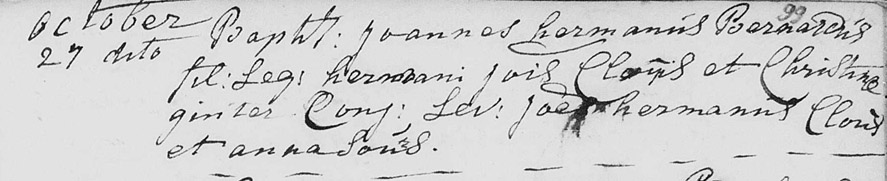 october 99
27 dito Bapht: joannes hermanus Bernardus
fil: Leg: hermani jois Cloüs et Christine
ginter Conj: Lev: joes hermanus Cloüs
et anna Soürs.